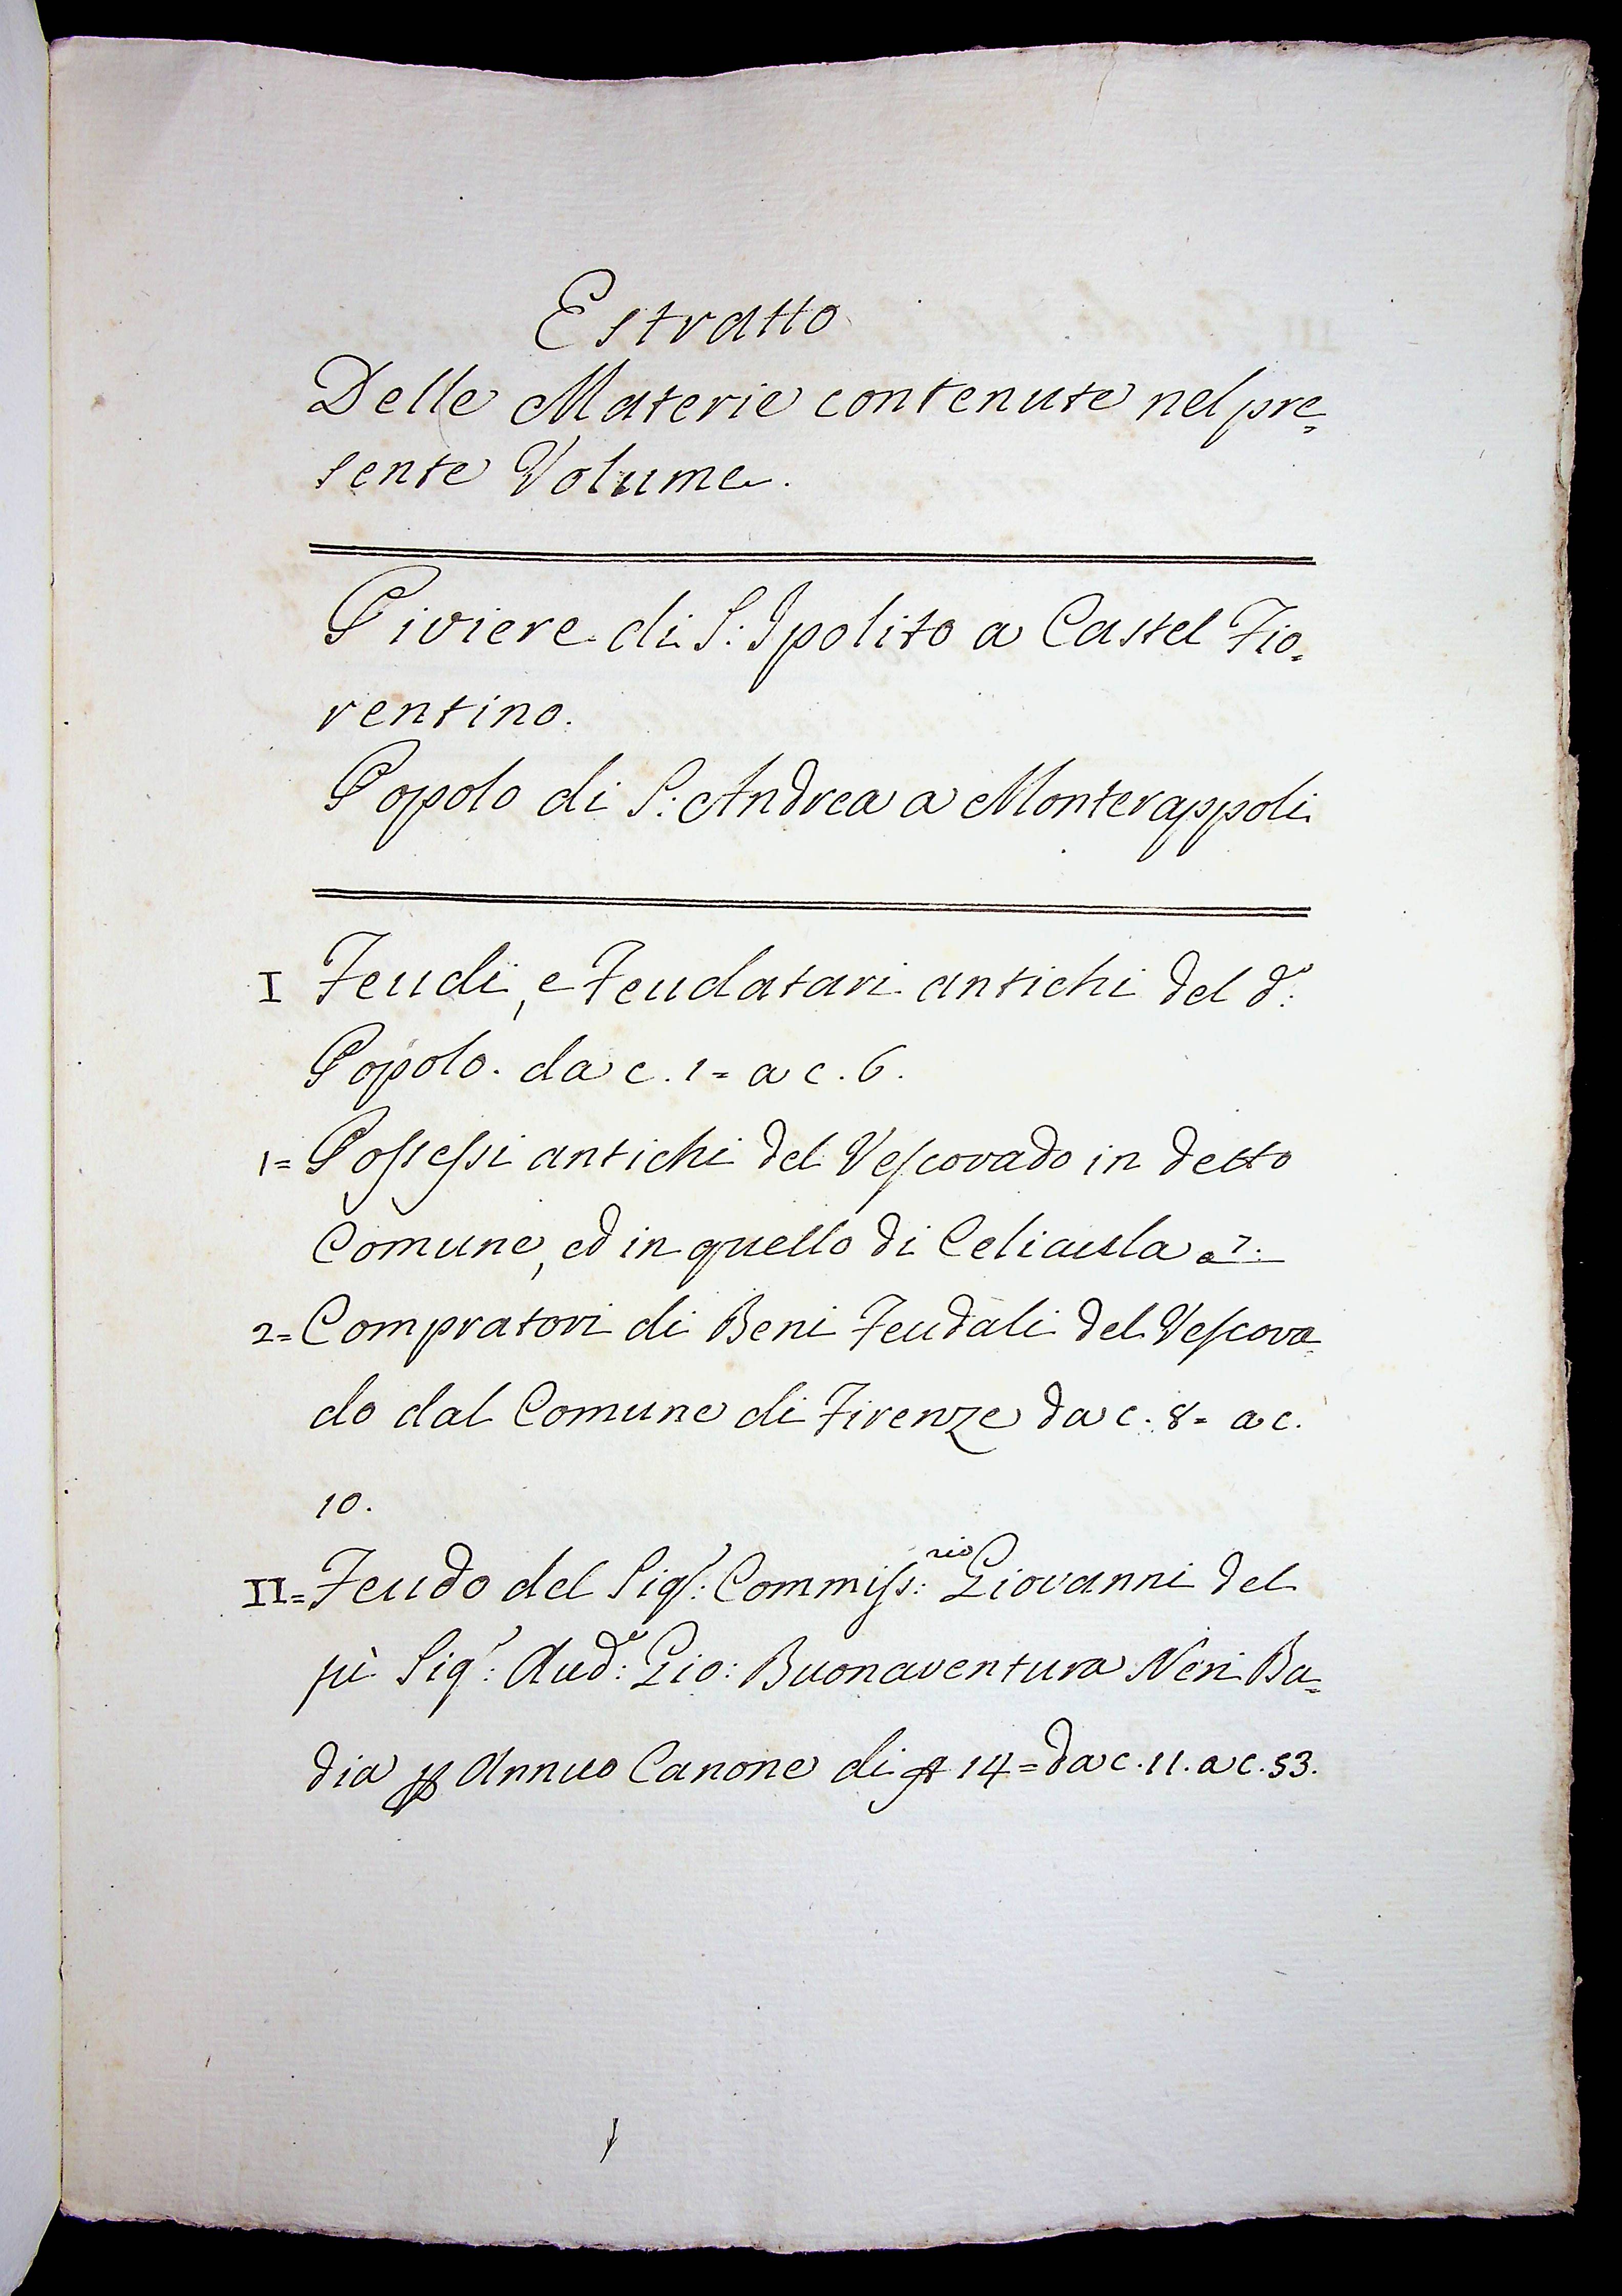 Estratto
Delle Materie contenute nel pre=
sente Volume.
Piviere di S: Ipolito a Castel Fio=
rentino.
Popolo di S: Andrea a Monterappoli
I Feudi, e Feudatari antichi del d.º:
Popolo. da c. 1= a c. 6.
1= Possessi antichi del Vescovado in detto
Comune, ed in quello di Celiaula a 7.
2= Compratori di Beni Feudali del Vescova=
do dal Comune di Firenze da c. 8= a c.
10.
II= Feudo del Sigr: Commiss:rio Giovanni del
fù Sigr: Aud:e Gio: Buonaventura Neri Ba=
dia p Annuo Canone di 14= da c. 11. a c. 53.